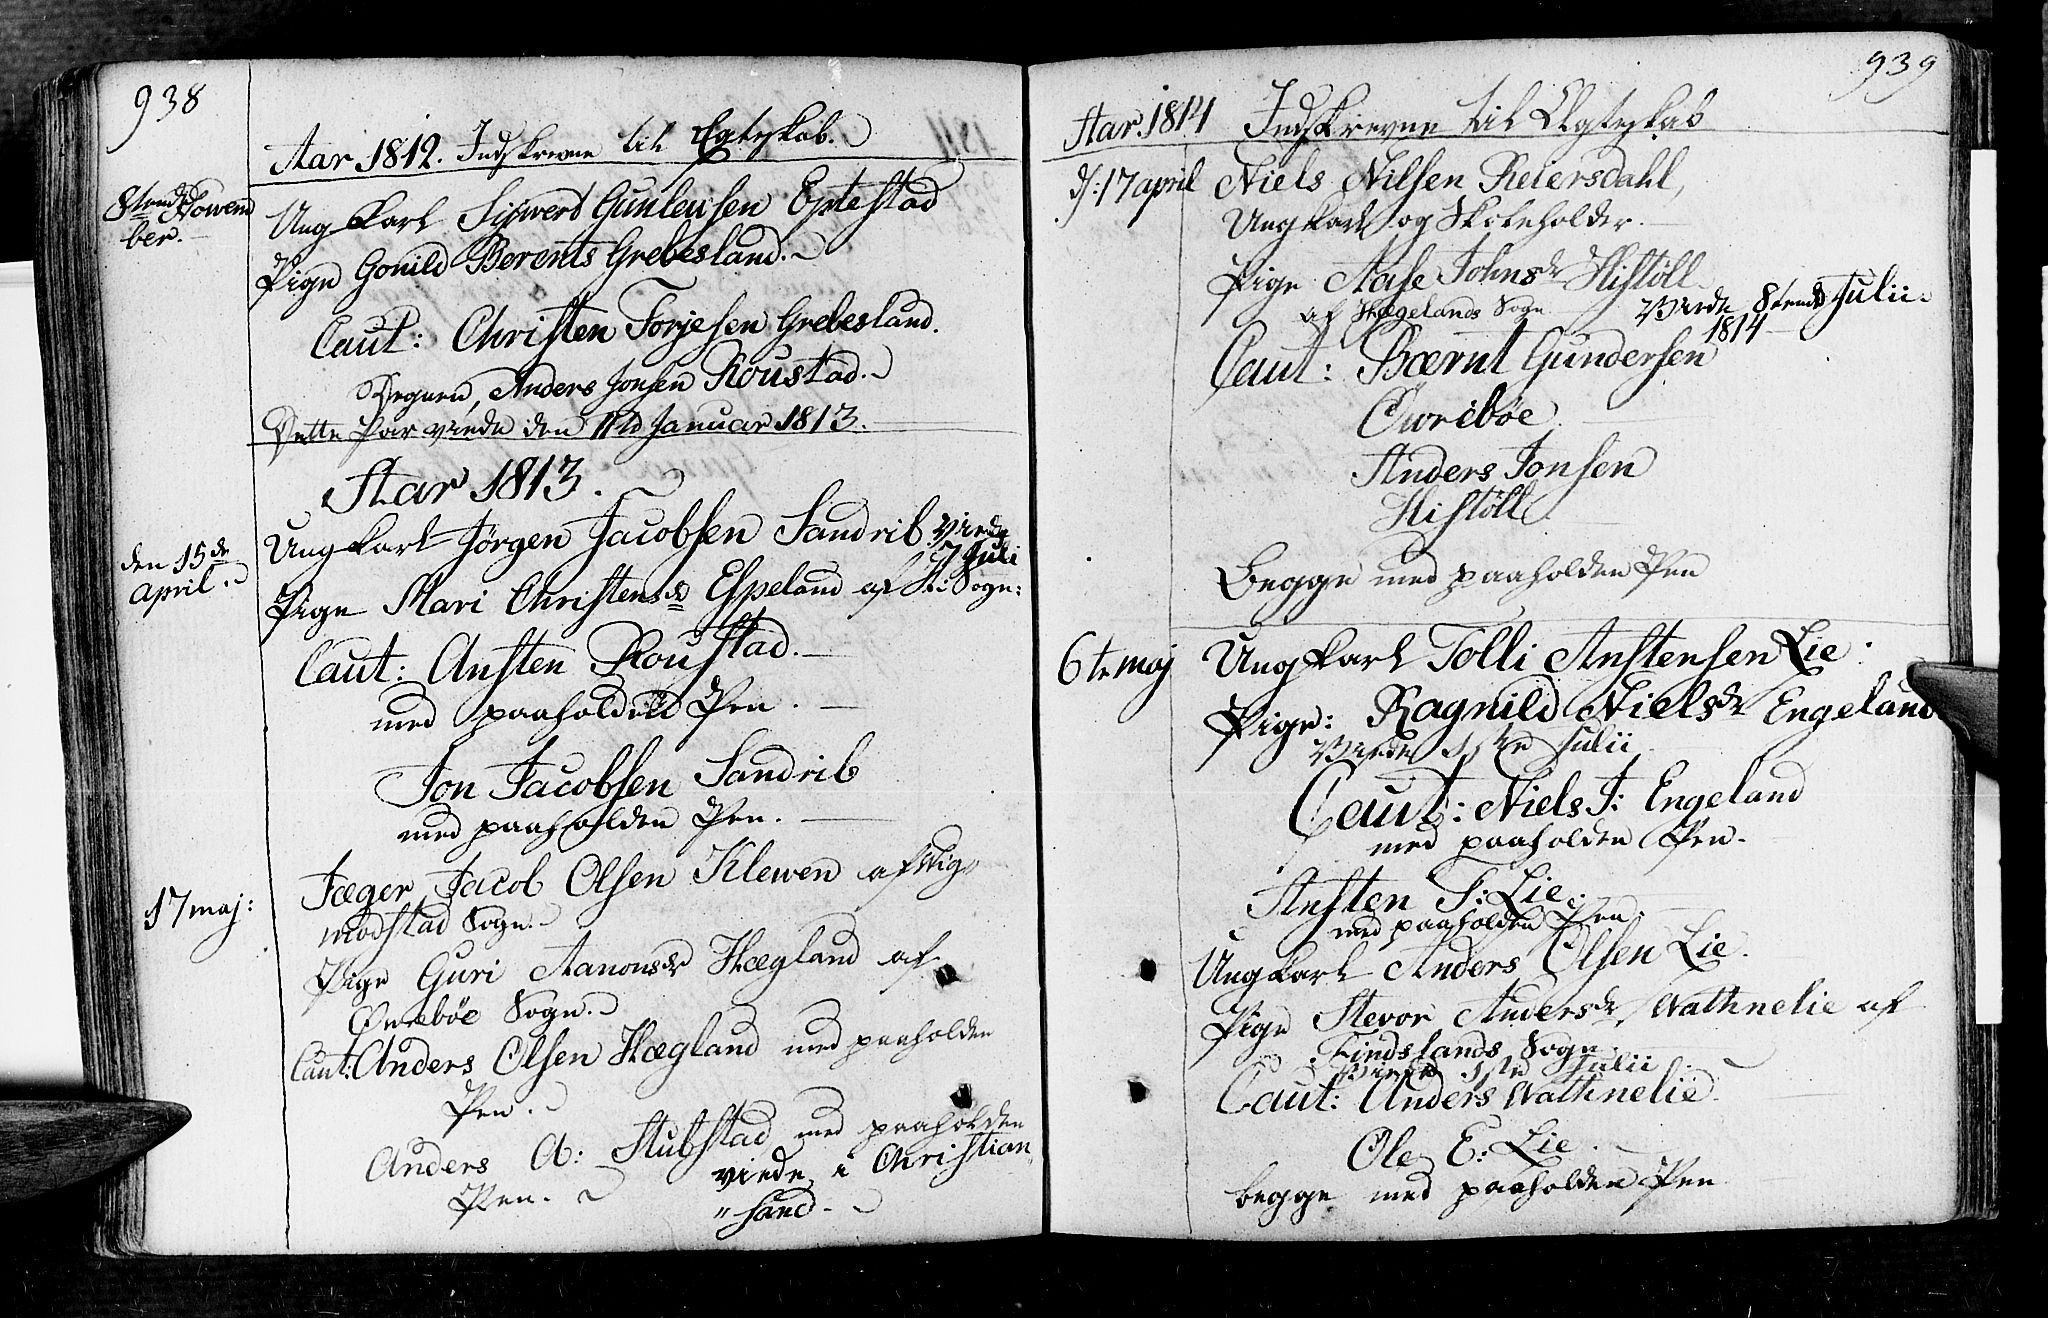 938
Aar 1812. Indskrevne til Egteskab.
8tende Nowem
ber.
Ung Karl Sivert Gunleusen Eptestad
Pige Gonild Berents Grebesland.
Caut: Christen Torjesen Grebesland.
Degnen, Anders Jonsen Roustad.
Dette Par viede den 11te Januar 1813.
Aar 1813.
den 15de
april.
Ungkarl Jörgen Jacobsen Sandrib Viede
7 Juli
Pige Mari Christensdr Espeland af H: Sogn:
Caut: Ansten Roustad.
med paaholden Pen.
Jon Jacobsen Sandrib
med paaholden Pen.
17 maj:
Jæger Jacob Olsen Klewen af Wig„
modstad Sogn.
Pige Guri Aanonsdr Hægland af
Øvrebøe Sogn.
Caut: Anders Olsen Hægland med paaholden
Pen.
Anders A: Stubstad med paaholden
Pen. viede i Christian„
„sand.
939
Aar 1814 Indskrevne til Ægteskab
d: 17 april Niels Nilsen Reiersdahl,
Ungkarl og Skoleholder.
Pige Aase Johnsdr Histöll
af Hægelands Sogn Viede 8tende Julii
1814
Caut: Bærnt Gundersen
Øwrebøe
Anders Jonsen
Histöll
Begge med paaholden Pen
6te maj Ungkarl Tolli Anstensen Lie.
Pige: Ragnild Nielsdr Engeland
Viede 1ste Julii
Caut: Niels J: Engeland
med paaholden Pen.
Ansten T: Lie.
med paaholden Pen.
Ungkarl Anders Olsen Lie.
Pige Stevor Andersdr Wathnelie af
Findslands Sogn.
Viede 1ste Julii
Caut: Anders Wathnelie.
Ole E: Lie.
begge med paaholden Pen